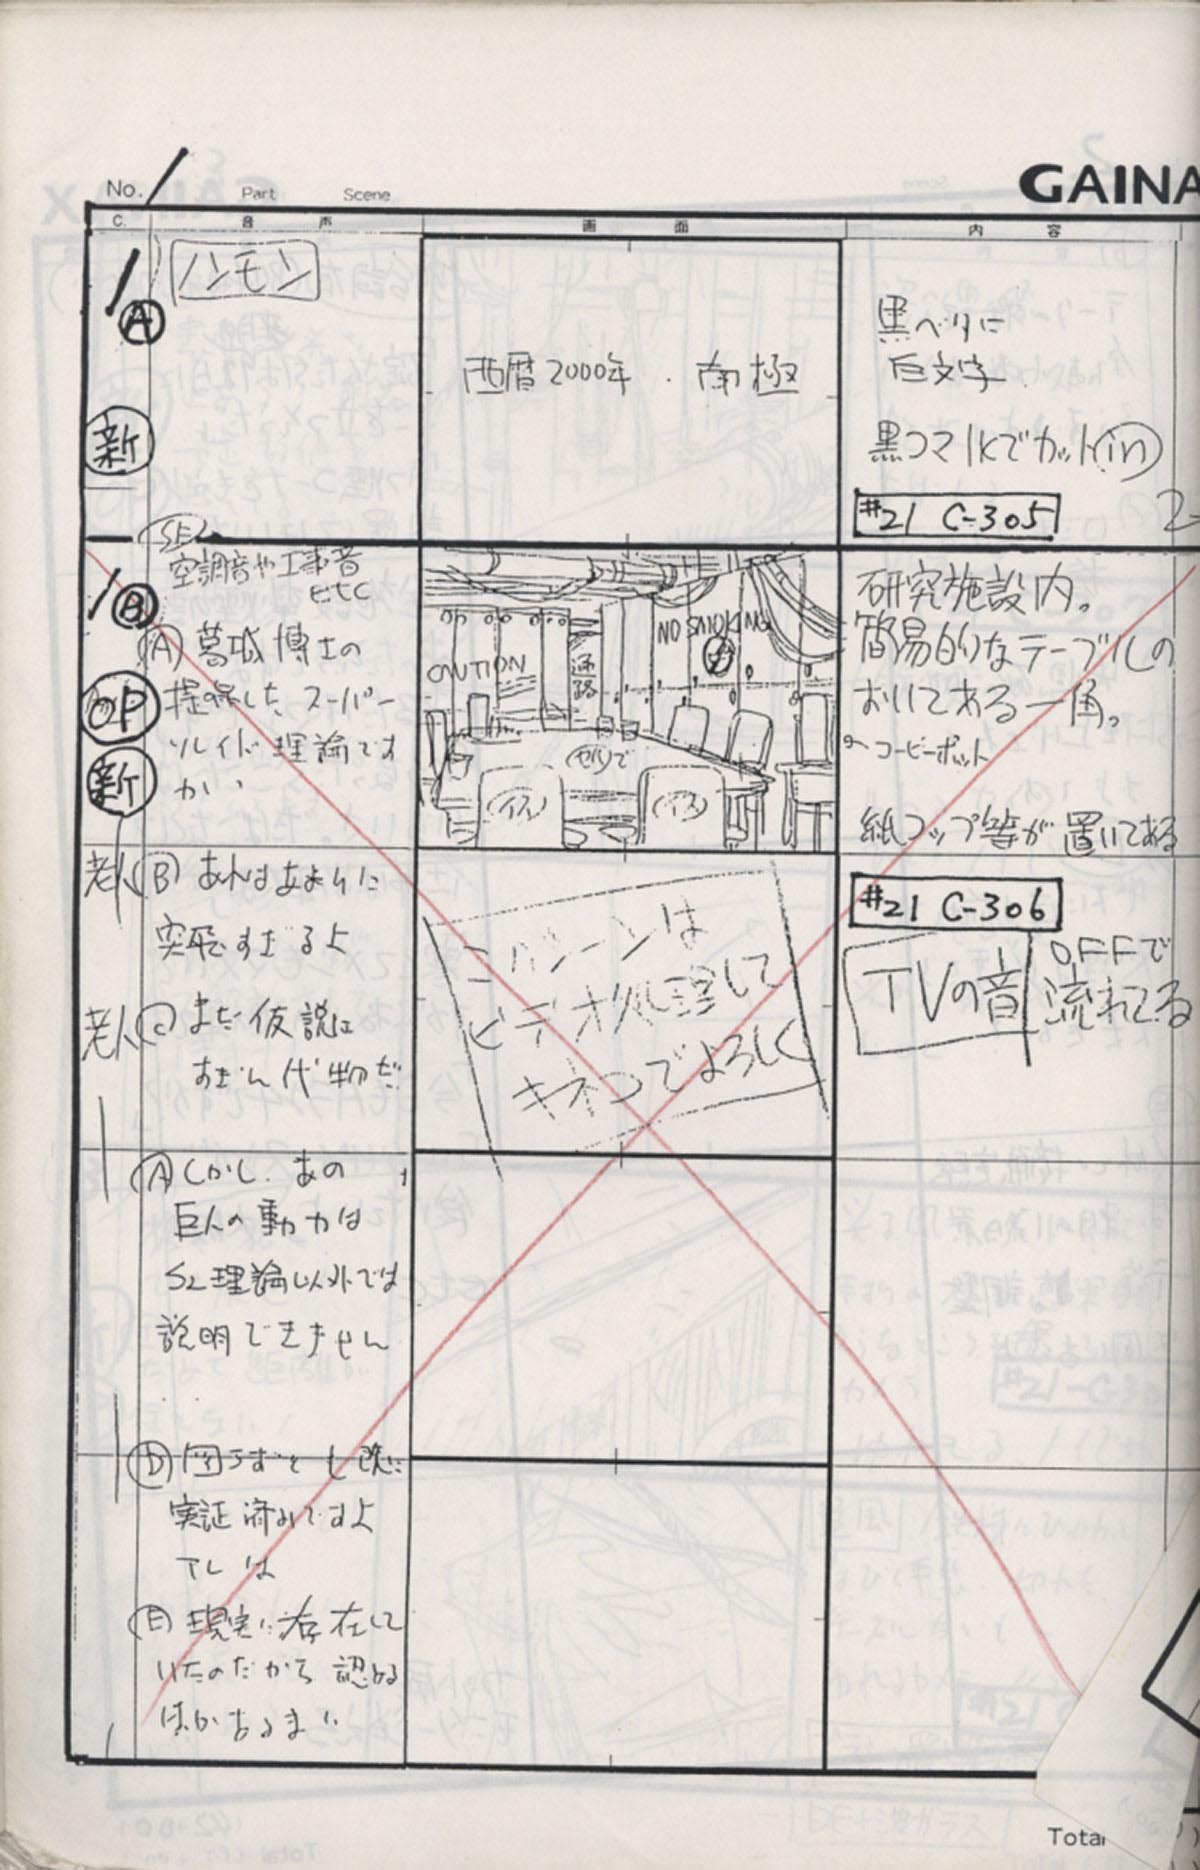 No. 1 Part Scene
GAINA
C. 音声 画面 内容
1
A
新
ノンモン
西暦2000年. 南極
黒ベタに
白文字.
黒コマ1Kでカットin
#21 C-305
2-
1
B
OP
新
SE
空調音や工事音
etc
A 葛城博士の
提唱した スーパー
ソレイド理論です
か、
CAUTION
通路
NO SMOKING
セルで
イス
イス
研究施設内。
簡易的なテーブルの
おいてある一角。
コーヒーポット
紙コップ等が置いてある
#21 C-306
TVの音
OFFで
流れてる
老人 B あれはあまりに
突飛すぎるよ
老人 C まだ仮説に
すぎん代物だ
ニバーンは
ビデオ処理して
キネコでよろしく
A しかし. あの
巨人の動力は
S2理論以外では
説明できません
D 図らずとも 既に
実証済みですよ
アレは
E 現実に存在して
いたのだから 認める
ほかあるまい
Total